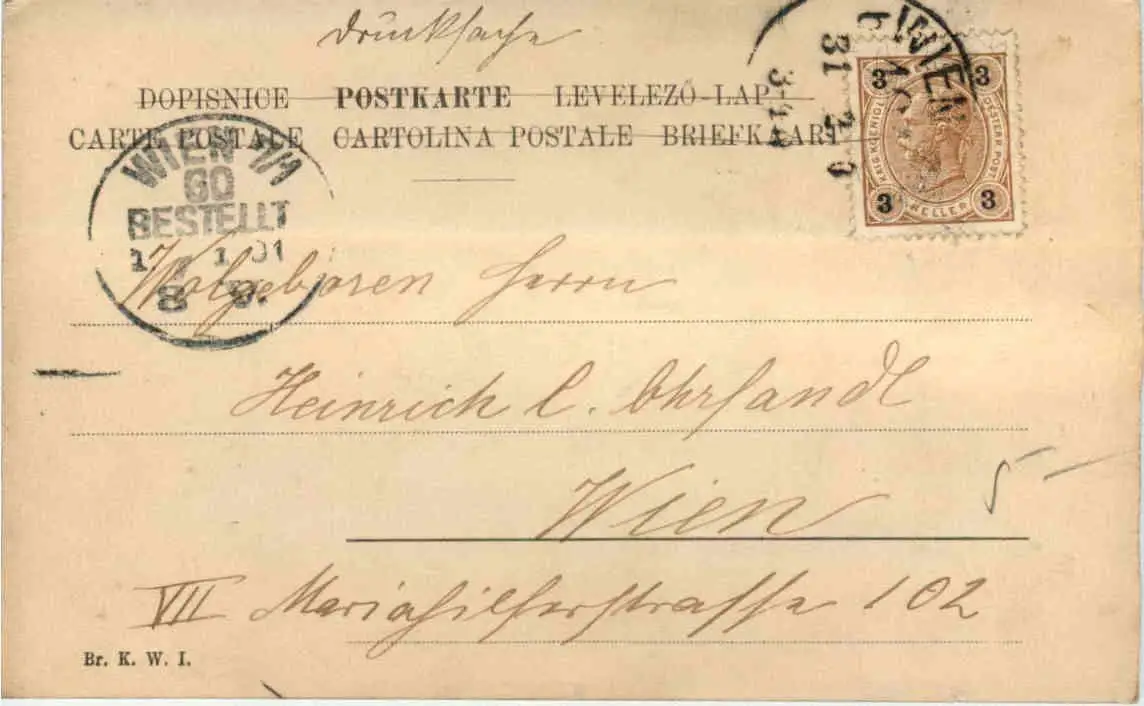 Drucksache
DOPISNICE POSTKARTE LEVELEZŐ-LAP
CARTE POSTALE CARTOLINA POSTALE BRIEFKAART
WIEN
31
3
3
KAIS. KOENIGL. OESTERR. POST
3 HELLER 3
WIEN 7/1
60
BESTELLT
1 1 01
8
Wolgeboren Herrn
Heinrich C. Ohrfandl
Wien
5-
VII Mariahilferstrasse 102
Br. K. W. I.